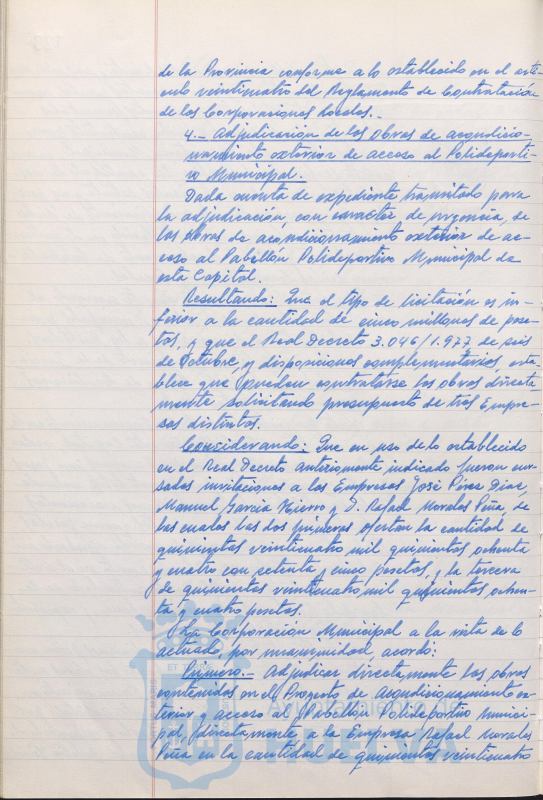 de la Provincia conforme a lo establecido en el artí-
culo veinticuatro del Reglamento de Contratación
de las Corporaciones Locales.-
4.- Adjudicación de las obras de acondicio-
namiento exterior de acceso al Polideporti-
vo Municipal.
Dada cuenta de expediente tramitado para
la adjudicación, con carácter de urgencia, de
las obras de acondicionamiento exterior de ac-
ceso al Pabellón Polideportivo Municipal de
esta Capital.
Resultando: Que el tipo de licitación es in-
ferior a la cantidad de cinco millones de pese-
tas, y que el Real Decreto 3.046/1.977 de seis
de Octubre, y disposiciones complementarias, esta-
blece que pueden contratarse las obras directa-
mente solicitando presupuesto de tres Empre-
sas distintas.
Considerando: Que en uso de lo establecido
en el Real Decreto anteriormente indicado fueron cur-
sadas invitaciones a las Empresas José Pérez Díaz,
Manuel García Fierro y D. Rafael Morales Peña, de
las cuales las dos primeras ofertan la cantidad de
quinientas veinticuatro mil quinientas ochenta
y cuatro con setenta y cinco pesetas, y la tercera
de quinientas veinticuatro mil quinientas ochen-
ta y cuatro pesetas.
La Corporación Municipal a la vista de lo
actuado, por unanimidad, acordó:
Primero.- Adjudicar directamente las obras
contenidas en el Proyecto de Acondicionamiento ex-
terior y acceso al Pabellón Polideportivo Munici-
pal, directamente a la Empresa Rafael Morales
Peña en la cantidad de quinientas veinticuatro
Ayuntamiento de
HUELVA